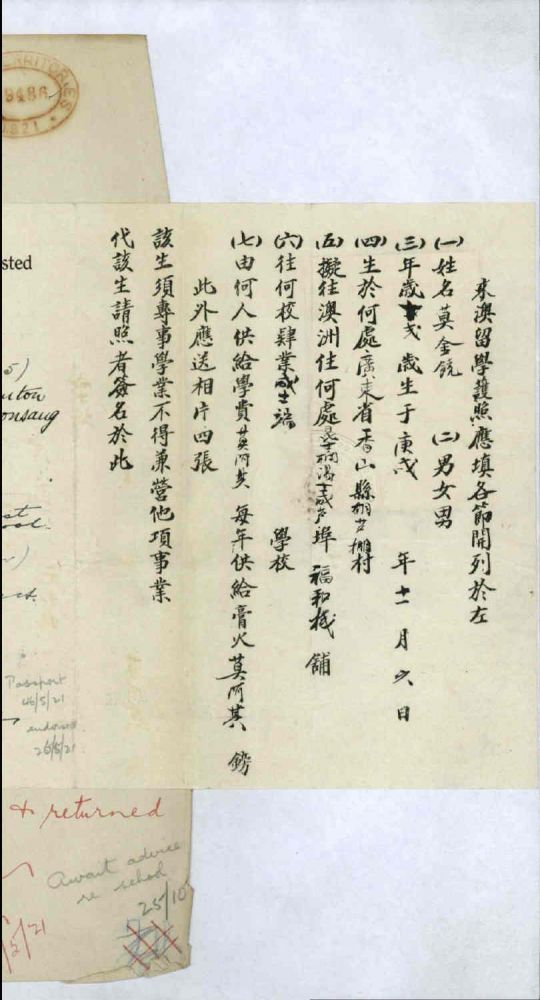 來澳留學護照應填各節開列於左
(一)姓名莫金饒 (二)男女男
(三)年歲 歲生于庚戌 年十一月六日
(四)生於何處廣東省香山縣 棚村
(五)擬往澳洲住何處 埠 福和棧 舖
(六)往何校肄業 學校
(七)由何人供給學費 每年供給膏火莫阿其 鎊
此外應送相片四張
該生須專事學業不得兼營他項事業
代該生請照者簽名於此
TERRITORIES
8486
1921
sted
5)
onsang
Passport
26/5/21
endorsed
26/5/21
& returned
Await advice
re school
25/10